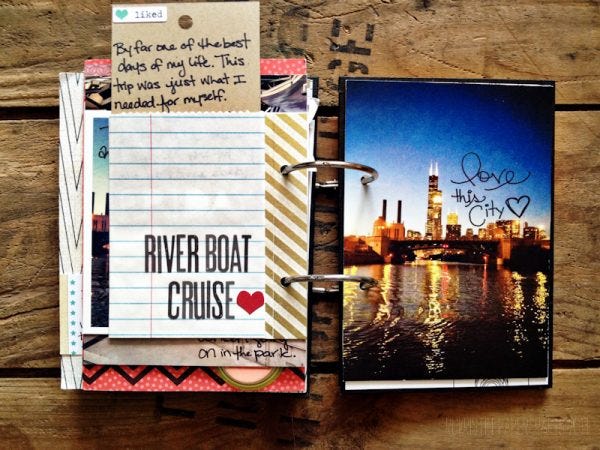 liked
By far one of the best
days of my life. This
trip was just what I
needed for myself.
RIVER BOAT
CRUISE
on in the park.
love
this
City